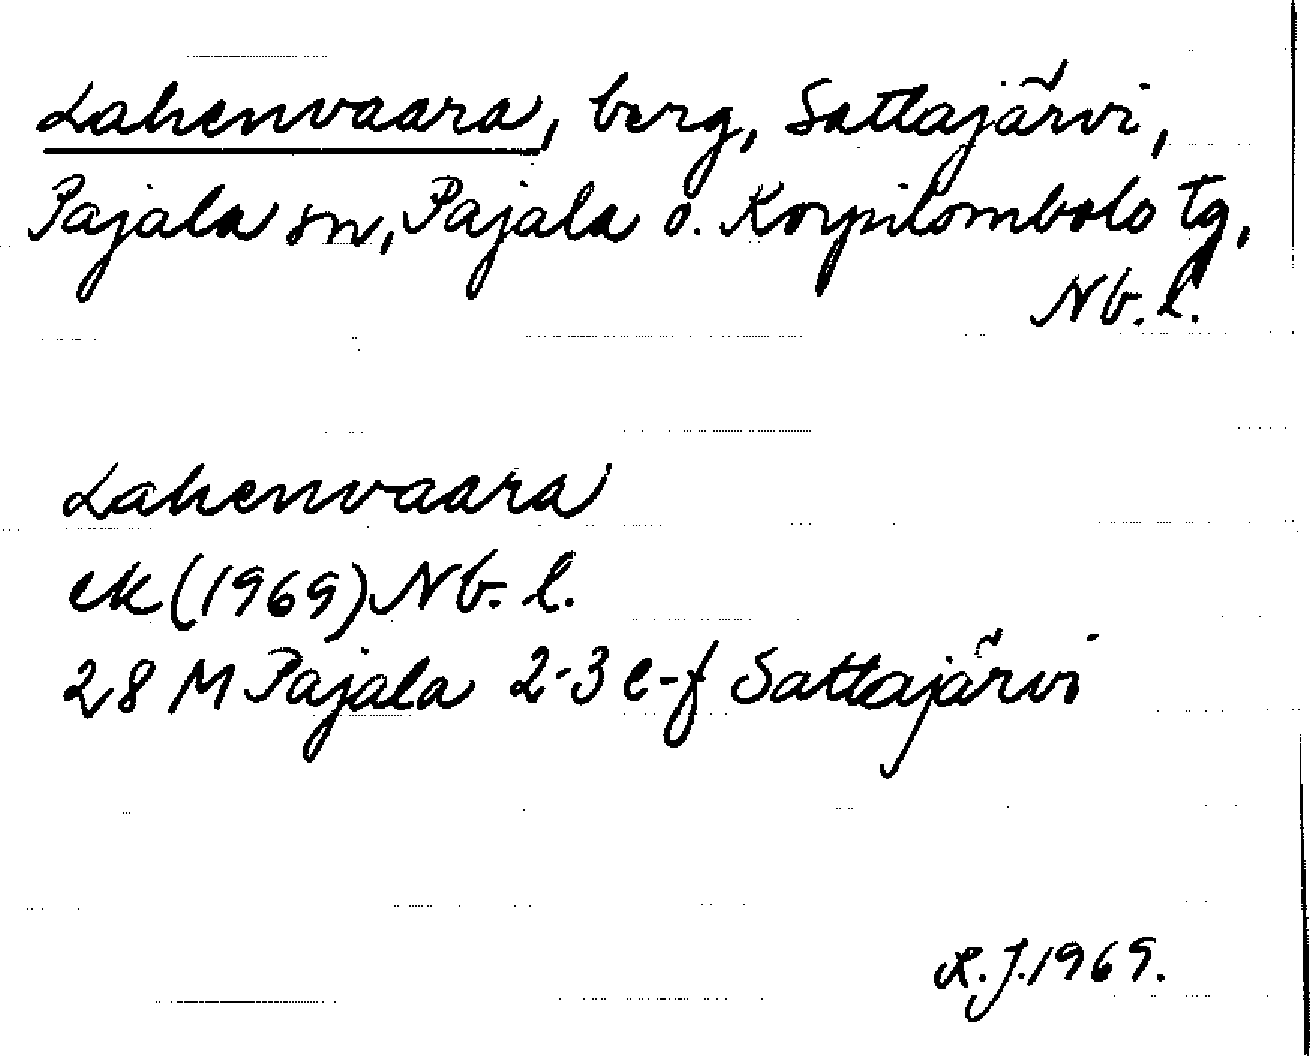 Lahenvaara, berg, Sattajärvi,
Pajala sn, Pajala o. Korpilombolo tg,
Nb. l.
Lahenvaara
ek (1969) Nb. l.
28 M Pajala 2-3 e-f Sattajärvi
R. J. 1969.